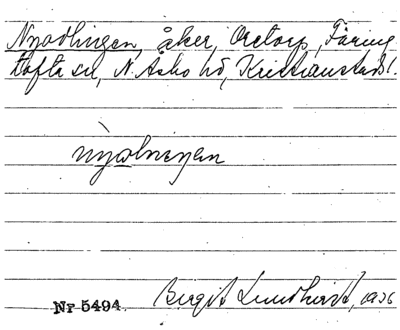 Nyodlingen, åker, Oretorp, Färing
tofta sn, N. Åsbo hd, Kristianstads l.
nỳ𝑜lnıŋen
Nr 5494. Birgit Lundkvist, 1936